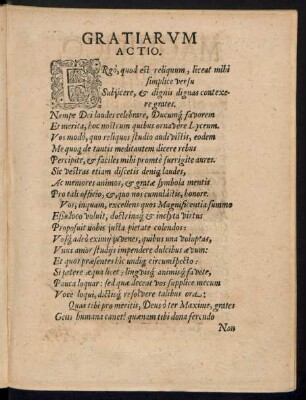 GRATIARVM
ACTIO.
ERgò, quod est reliquum, liceat mihi
simplice versu
Subijcere, & dignis dignas contexe-
re grates.
Nempe Dei laudes celebrare, Ducumq́ favorem
Et merita, hoc nostrum quibus ornavere Lyceum.
Vos modò, quo reliquos studio audivistis, eodem
Me quoq́ de tantis meditantem dicere rebus
Percipite, & faciles mihi promtè surrigite aures.
Sic vestras etiam discetis denig laudes,
Ac memores animos, & gratæ symbola mentis
Pro tali officio, & quo nos cumulâstis, honore.
Vos, inquam, excellens quos Magnificentia summo
Esse loco voluit, doctrinaq́ & inclyta virtus
Proposuit nobis justa pietate colendos:
Vosq́ adeò eximij juvenes, quibus una voluptas,
Vnus amor studijs impendere dulcibus ævum:
Et quot præsentes hîc undiq circumspecto:
Si petere æqua licet: linguisq́ animisq́ favete,
Pauca loquar: sed quæ deceat vos supplice mecum
Voce loqui, dictisq́ resolvere talibus ora:
Quas tibi pro meritis, Deus ô ter Maxime, grates
Gens humana canet? quænam tibi dona ferendo
Non